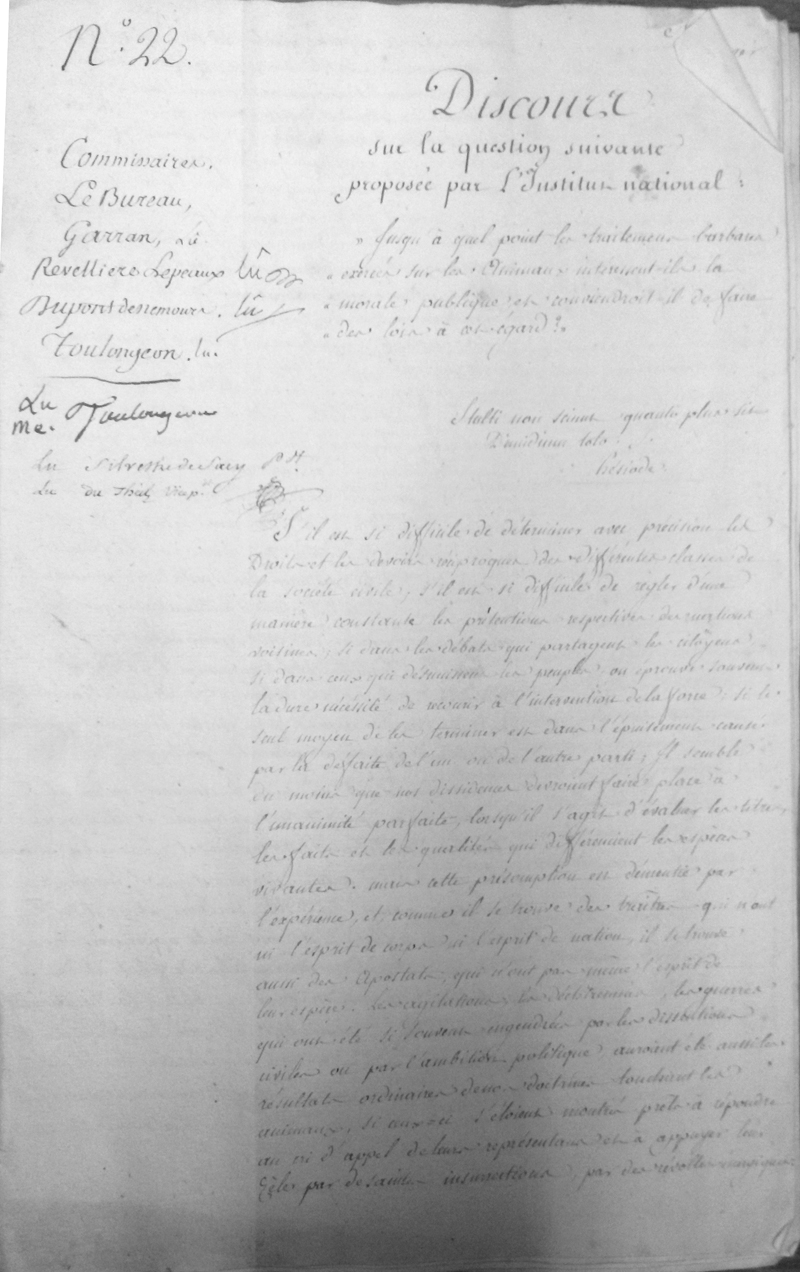 N.° 22.
Commissaires.
Le Bureau,
Garran, Lu
Revelliere Lepeaux lû
Dupont de nemours. lû
Toulongeon. lu.
Lu
me. Toulongeon
lu Silvestre de Sacy Pdt.
Lu du Theil
Discours
sur la question suivante
proposée par l'Institut national :
" Jusqu'à quel point les traitemens barbares
" exercés sur les Animaux intéressent-ils la
" morale publique et conviendroit il de faire
" des lois à cet égard ? "
Stulti non sciunt quanto plus sit
Dimidium toto.
Hésiode.
S'il est si difficile de déterminer avec précision les
Droits et les devoirs réciproques des différentes classes de
la société civile, s'il est si difficile de régler d'une
manière constante les prétentions respectives des nations
voisines, si dans les débats qui partagent les citoyens
si dans ceux qui désunissent les peuples on éprouve souvent
la dure nécéssité de recourir à l'intervention de la force ; si le
seul moyen de les terminer est dans l'épuisement causé
par la défaite de l'un ou de l'autre parti ; Il semble
du moins que nos dissidences devroient faire place à
l'unanimité parfaite, lorsqu'il s'agit d'évaluer les titres,
les faits et les qualités qui différencient les espèces
vivantes. mais cette présomption est démentie par
l'expérience, et, comme il se trouve des traîtres qui n'ont
ni l'esprit de corps ni l'esprit de nation, il se trouve
aussi des Apostats, qui n'ont pas même l'esprit de
leur espèce. Les agitations, les , les guerres
qui ont été si souvent engendrées par les dissentions
civiles ou par l'ambition politique auroient été aussi les
résultats ordinaires de nos doctrines touchant les
animaux, si ceux-ci s'étoient montrés prêts à répondre
au cri d'appel de leurs représentans et à appuyer leur
zèle par de saintes insurrections, par des révoltes